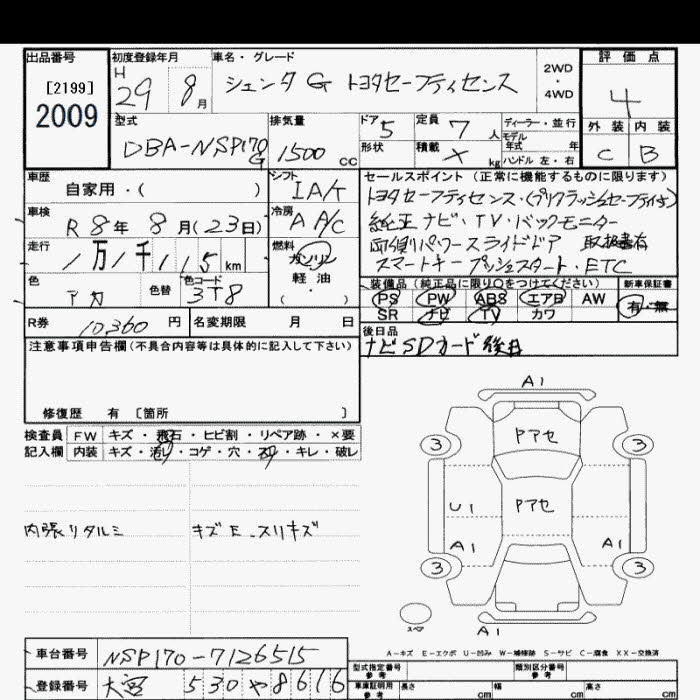 出品番号 初度登録年月 車名・グレード 評価点
[2199] H 29 8月 シエンタ G トヨタセーフティセンス 2WD・4WD 4
2009
型式 排気量 ドア 5 定員 7人 ディーラー・並行 外装 内装
DBA-NSP170G 1500cc 形状 積載 × kg モデル年式 年 C B
ハンドル 左・右
車歴 シフト セールスポイント (正常に機能するものに限ります)
自家用・( ) IA/T トヨタセーフティセンス・(プリクラッシュセーフティ付)
車検 冷房 純正ナビ・TV・バックモニター
R 8年 8月(23日) A A/C 両側パワースライドドア 取扱書有
走行 燃料 スマートキー プッシュスタート・ETC
1万1千115km ガソリン
色 色替 色コード 軽油 装備品 (純正品に限り○をつけてください) 新車保証書
アカ 3T8 ( ・ ) PS PW ABS エアB AW 有・無
SR ナビ TV カワ
R券 10,360円 名変期限 月 日 後日品
ナビSDカード後日
注意事項申告欄 (不具合内容等は具体的に記入して下さい)
修復歴 有 [箇所 ]
検査員 FW キズ・飛石・ヒビ割・リペア跡・×要
記入欄 内装 キズ・汚レ・コゲ・穴・スレ・キレ・破レ
内張リタルミ キズE.スリキズ
A1
3 Pアセ 3
U1 Pアセ
A1 A1
3 3
スペア
A1
A-キズ E-エクボ U-凹み W-補修跡 S-サビ C-腐食 XX-交換済
車台番号 NSP170-7126515 型式指定番号 参考 類別区分番号 参考
登録番号 大宮 530 や 8616 車庫証明用 参考 長さ cm 幅 cm 高さ cm